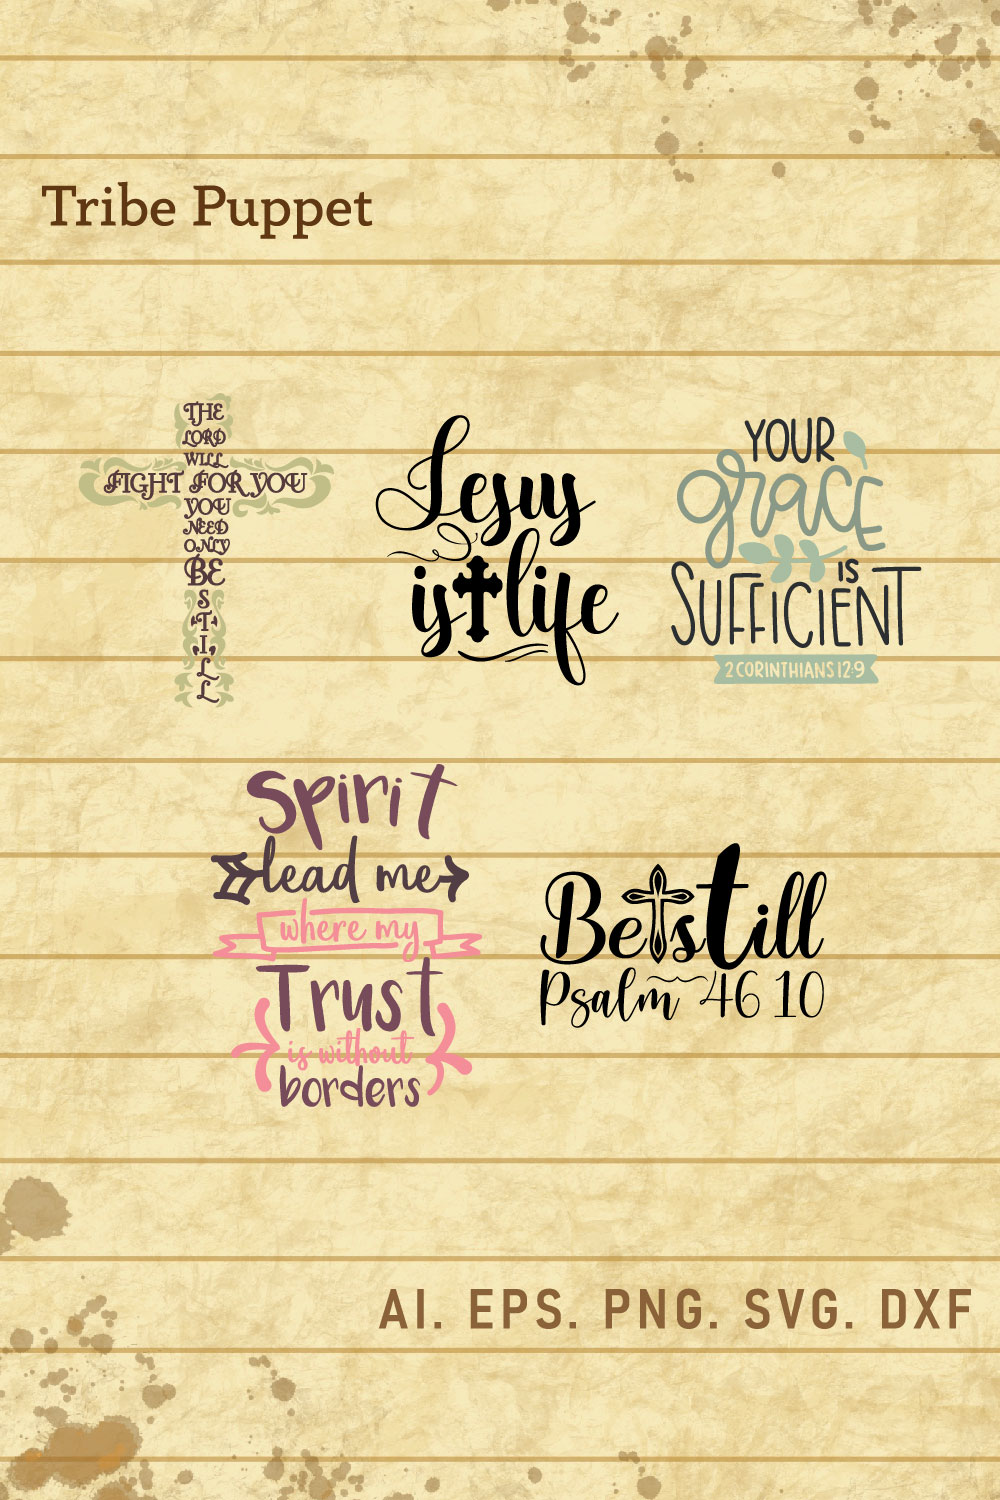 Tribe Puppet
THE
LORD
WILL
FIGHT FOR YOU
YOU
NEED
ONLY
BE
S
T
I
L
L
Jesus
is life
YOUR
grace
IS
SUFFICIENT
2 CORINTHIANS 12:9
Spirit
lead me
where my
Trust
is without
borders
Be still
Psalm 46 10
AI. EPS. PNG. SVG. DXF